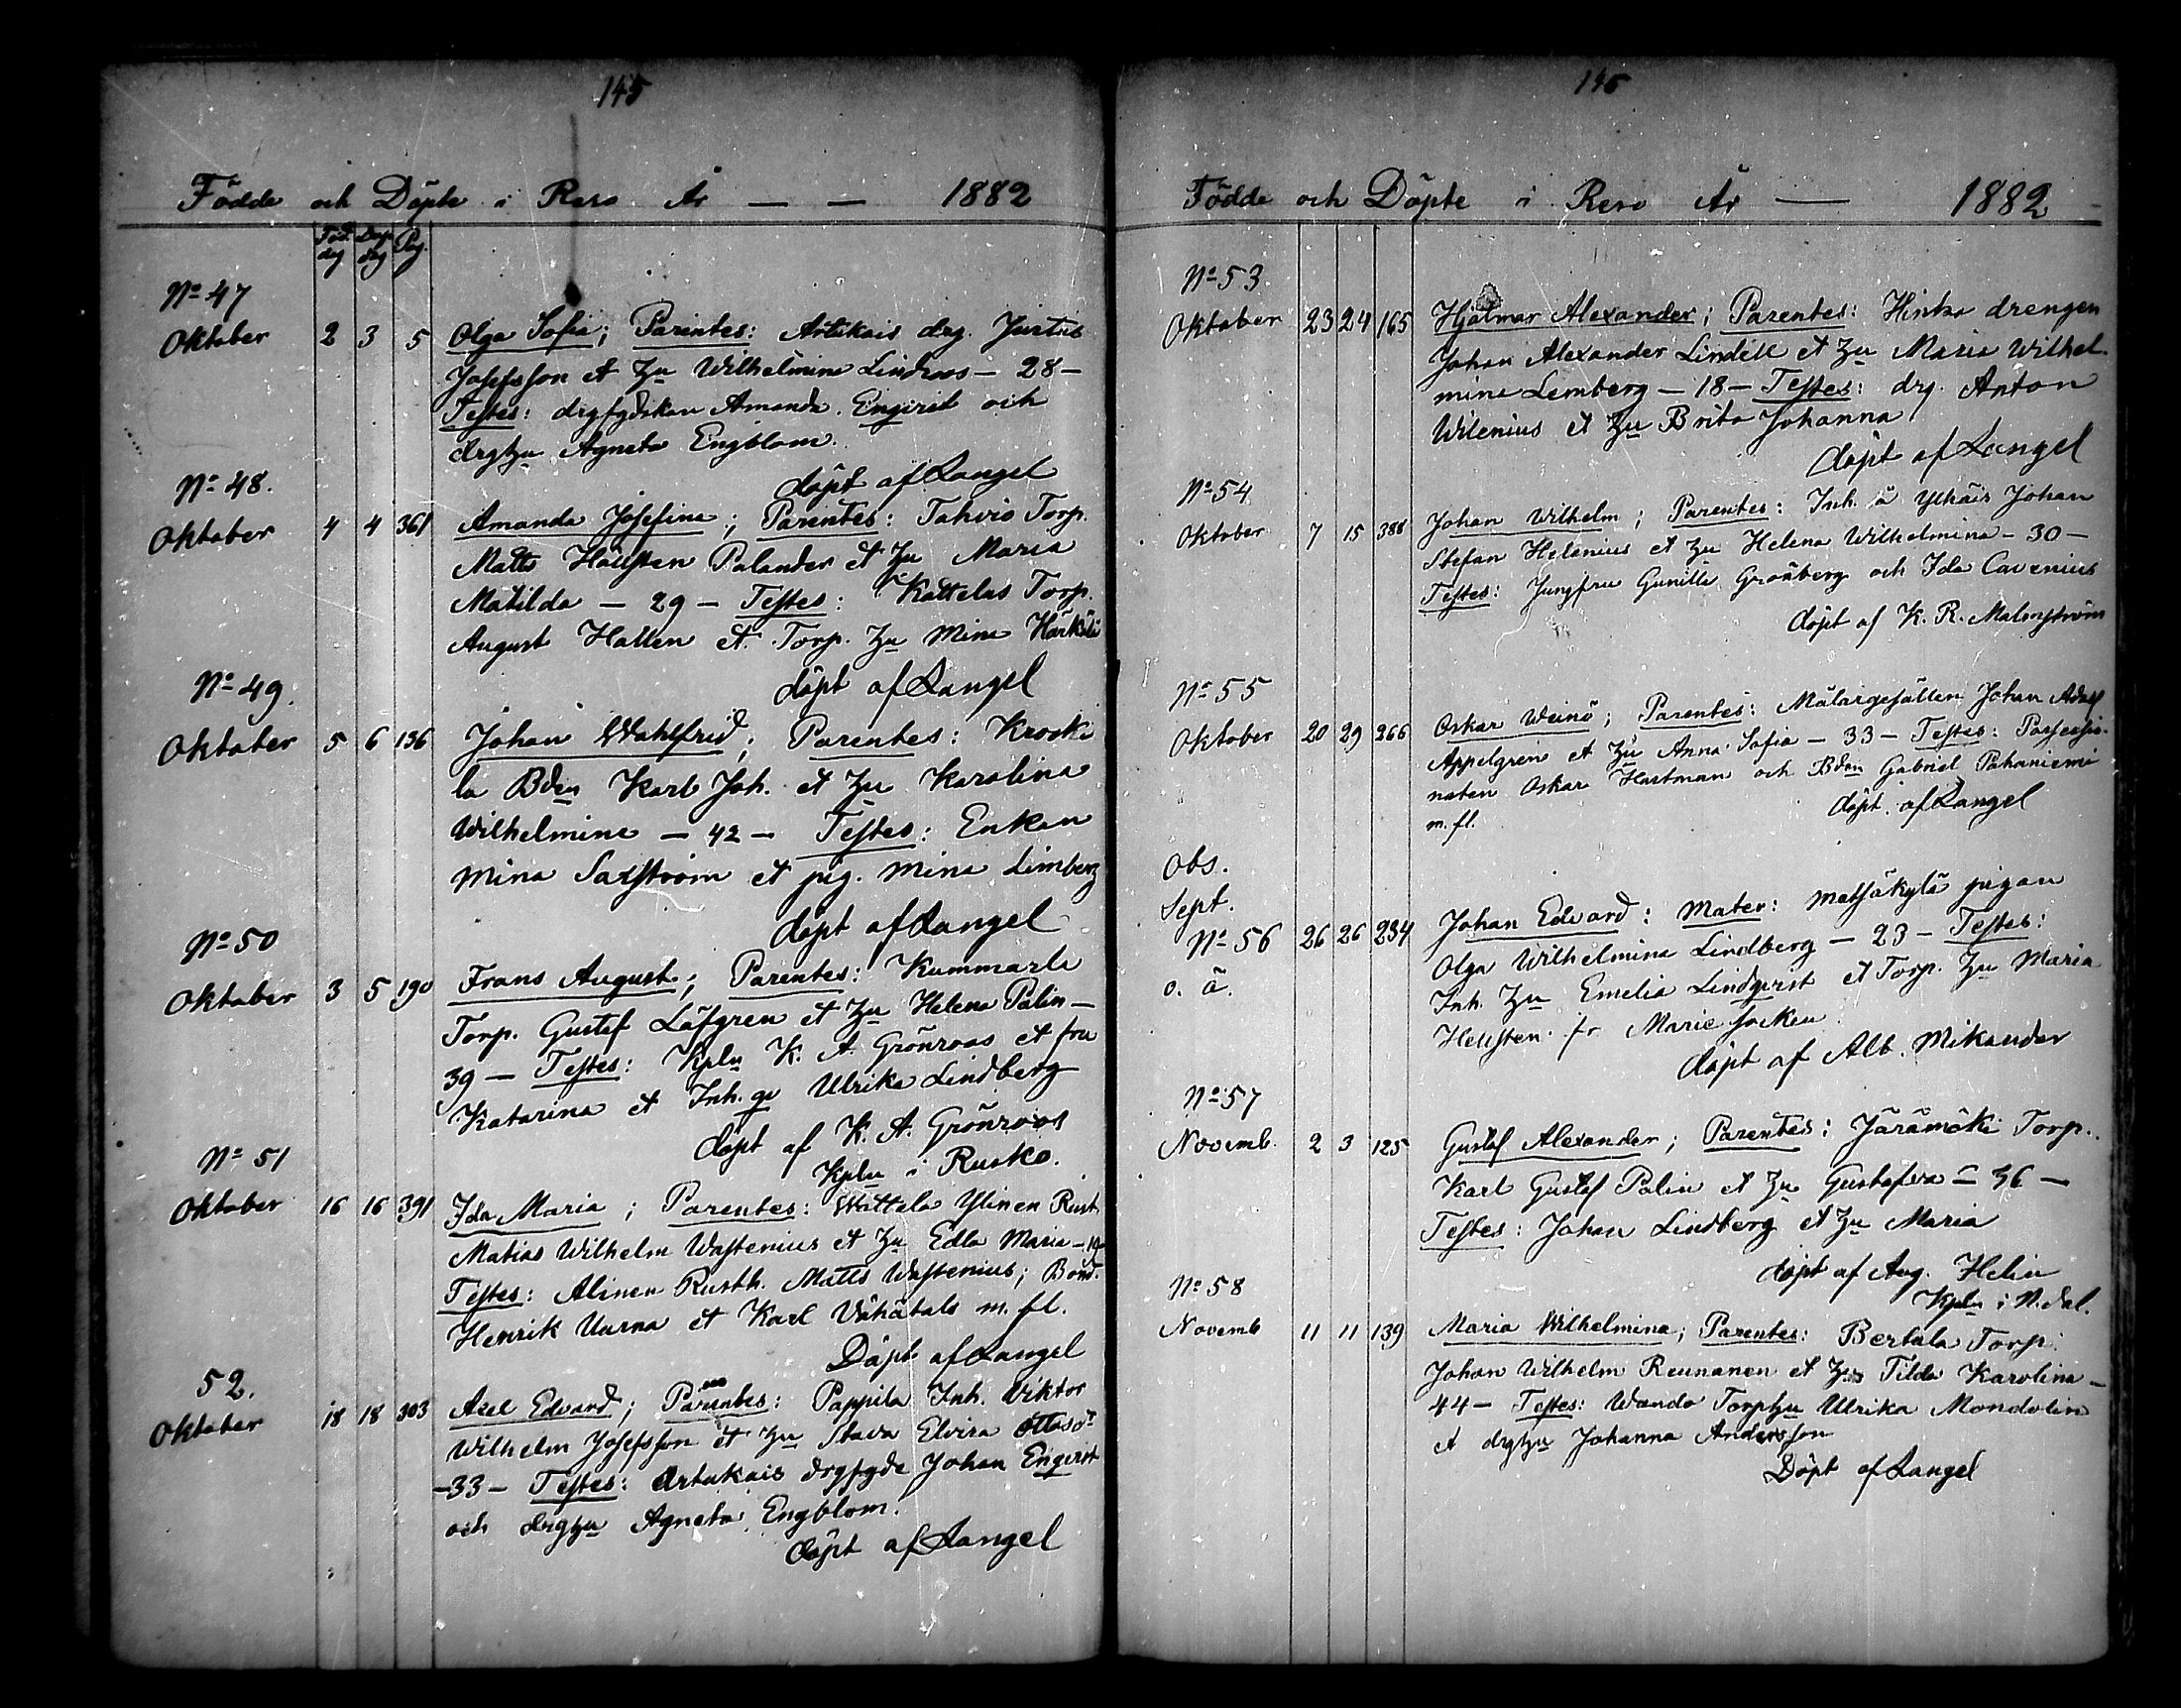 145
Födde och Döpte i Reso År — — 1882
Föd. dag Döp. dag Pag.
No 47
Oktober 2 3 5 Olga Sofia; Parentes: Artukais drg. Justus
Josefsson et Hu Wilhelmina Lindroos — 28 —
Testes: drgfgdskan Amanda Engvist och
drghu Agneta Engblom.
döpt af Langel
No 48.
Oktober 4 4 361 Amanda Josefina; Parentes: Tahvio Torp.
Matts Hällsten Palander et Hu Maria
Matilda — 29 — Testes: Kattelus Torp.
August Hallen et Torp. Hu Mina Härkälä
döpt af Langel
No 49.
Oktober 5 6 136 Johan Wahlfrid; Parentes: Krooki
la Bden Karl Joh. et Hu Karolina
Wilhelmina — 42 — Testes: Enkan
Mina Saxström et pig. Mina Limberg
döpt af Langel
No 50
Oktober 3 5 190 Frans August; Parentes: Kummarla
Torp. Gustef Löfgren et Hu Helena Palin —
39 — Testes: Kpln K. A. Grönroos et fru
Katarina et Inh. qv Ulrika Lindberg
döpt af K. A. Grönroos
Kpln i Rusko.
No 51
Oktober 16 16 391 Ida Maria; Parentes: Wattela Ylinen Rust.
Matias Wilhelm Wastenius et Hu Edla Maria — 19
Testes: Alinen Rusth. Matts Wastenius; Bond.
Henrik Uarna et Karl Vähätalo m. fl.
Döpt af Langel
52.
Oktober 18 18 303 Axel Edvard; Parentes: Pappila Inh. Viktor
Wilhelm Josefsson et Hu Stava Elvira Ottasdr
— 33 — Testes: Artukais drgfgde Johan Engvist
och drghu Agneta Engblom.
döpt af Langel
146
Födde och Döpte i Reso År — 1882
No 53
Oktober 23 24 165 Hjalmar Alexander; Parentes: Hintsa drengen
Johan Alexander Lindell et Hu Maria Wilhel-
mina Lemberg — 18 — Testes: drg. Anton
Wilenius et Hu Brita Johanna
döpt af Langel
No 54
Oktober 7 15 388 Johan Wilhelm; Parentes: Inh. å Ylhäis Johan
Stefan Helenius et Hu Helena Wilhelmina — 30 —
Testes: Jungfru Gunilla Grönberg och Ida Cavenius
döpt af K. R. Malmström
No 55
Oktober 20 29 266 Oskar Weinö; Parentes: Målargesällen Johan Adolf
Appelgren et Hu Anna Sofia — 33 — Testes: Possessio-
naten Oskar Hartman och Bden Gabriel Pahaniemi
m. fl.
döpt af Langel
Obs.
Sept.
No 56 26 26 234 Johan Edvard: Mater: Matsäkylä pigan
Olga Wilhelmina Lindberg — 23 — Testes:
o. ä. Inh. Hu Emelia Lindqvist et Torp. Hu Maria
Hellsten fr Marie socken.
döpt af Alb. Mikander
No 57
Novemb. 2 3 125 Gustaf Alexander; Parentes: Järämäki Torp.
Karl Gustaf Palin et Hu Gustafva — 36 —
Testes: Johan Lindberg et Hu Maria
döpt af Aug. Helin
Kpln i N.dal.
No 58
Novemb 11 11 139 Maria Wilhelmina; Parentes: Bertala Torp.
Johan Wilhelm Reunanen et Hu Tilda Karolina —
44 — Testes: Wanda Torphu Ulrika Mandolin
et drghu Johanna Andersson
Döpt af Langel